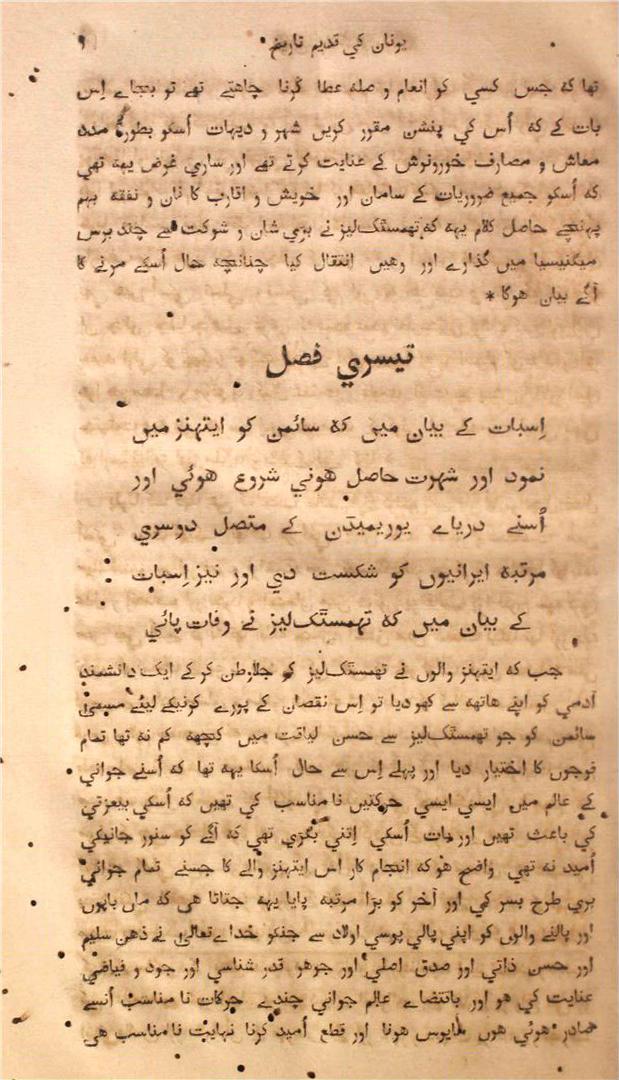 یونان کي قدیم تاریخ ۹
تھا کہ جس کسي کو انعام و صلہ عطا کرنا چاهتے تھے تو بجاے اِس
بات کے کہ اُس کي پنشن مقرر کریں شہر و دیہات اُسکو بطور مدد
معاش و مصارف خورونوش کے عنایت کرتے تھے اور ساري غرض یہہ تھي
کہ اُسکو جمیع ضروریات کے سامان اور خویش و اقارب کا نان و نفقہ بہم
پہنچے حاصل کلام یہہ کہ تھمستکلیز نے بڑي شان و شوکت سے چند برس
میگنیسیا میں گذارے اور وهیں انتقال کیا چنانچہ حال اُسکے مرنے کا
آگے بیان هوگا *
تیسري فصل
اِسبات کے بیان میں کہ سائمن کو ایتھنز میں
نمود اور شہرت حاصل هوني شروع هوئي اور
اُسنے دریاے یوریمیڈن کے متصل دوسري
مرتبہ ایرانیوں کو شکست دي اور نیز اِسبات
کے بیان میں کہ تھمستکلیز نے وفات پائي
جب کہ ایتھنز والوں نے تھمستکلیز کو جلاوطن کر کے ایک دانشمند
آدمي کو اپنے هاتھہ سے کھو دیا تو اِس نقصان کے پورے کرنیکے لیئے مسمی
سائمن کو جو تھمستکلیز سے حسن لیاقت میں کچھہ کم نہ تھا تمام
فوجوں کا اختیار دیا اور پہلے اِس سے حال اُسکا یہہ تھا کہ اُسنے جواني
کے عالم میں ایسي ایسي حرکتیں نا مناسب کي تھیں کہ اُسکي بیعزتي
کي باعث تھیں اور بات اُسکي اِتني بگڑي تھي کہ آگے کو سنور جانیکي
اُمید نہ تھي واضح هو کہ انجام کار اس ایتھنز والے کا جسنے تمام جواني
بري طرح بسر کي اور آخر کو بڑا مرتبہ پایا یہہ جتاتا هی کہ ماں باپوں
اور پالنے والوں کو اپني پالي پوسي اولاد سے جنکو خداے تعالیٰ نے ذهن سلیم
اور حسن ذاتي اور صدق اصلي اور جوهر قدر شناسي اور جود و فیاضي
عنایت کي هو اور باقتضاے عالم جواني چندے حرکات نا مناسب اُنسے
صادر هوئي هوں مایوس هونا اور قطع اُمید کرنا نہایت نا مناسب هی